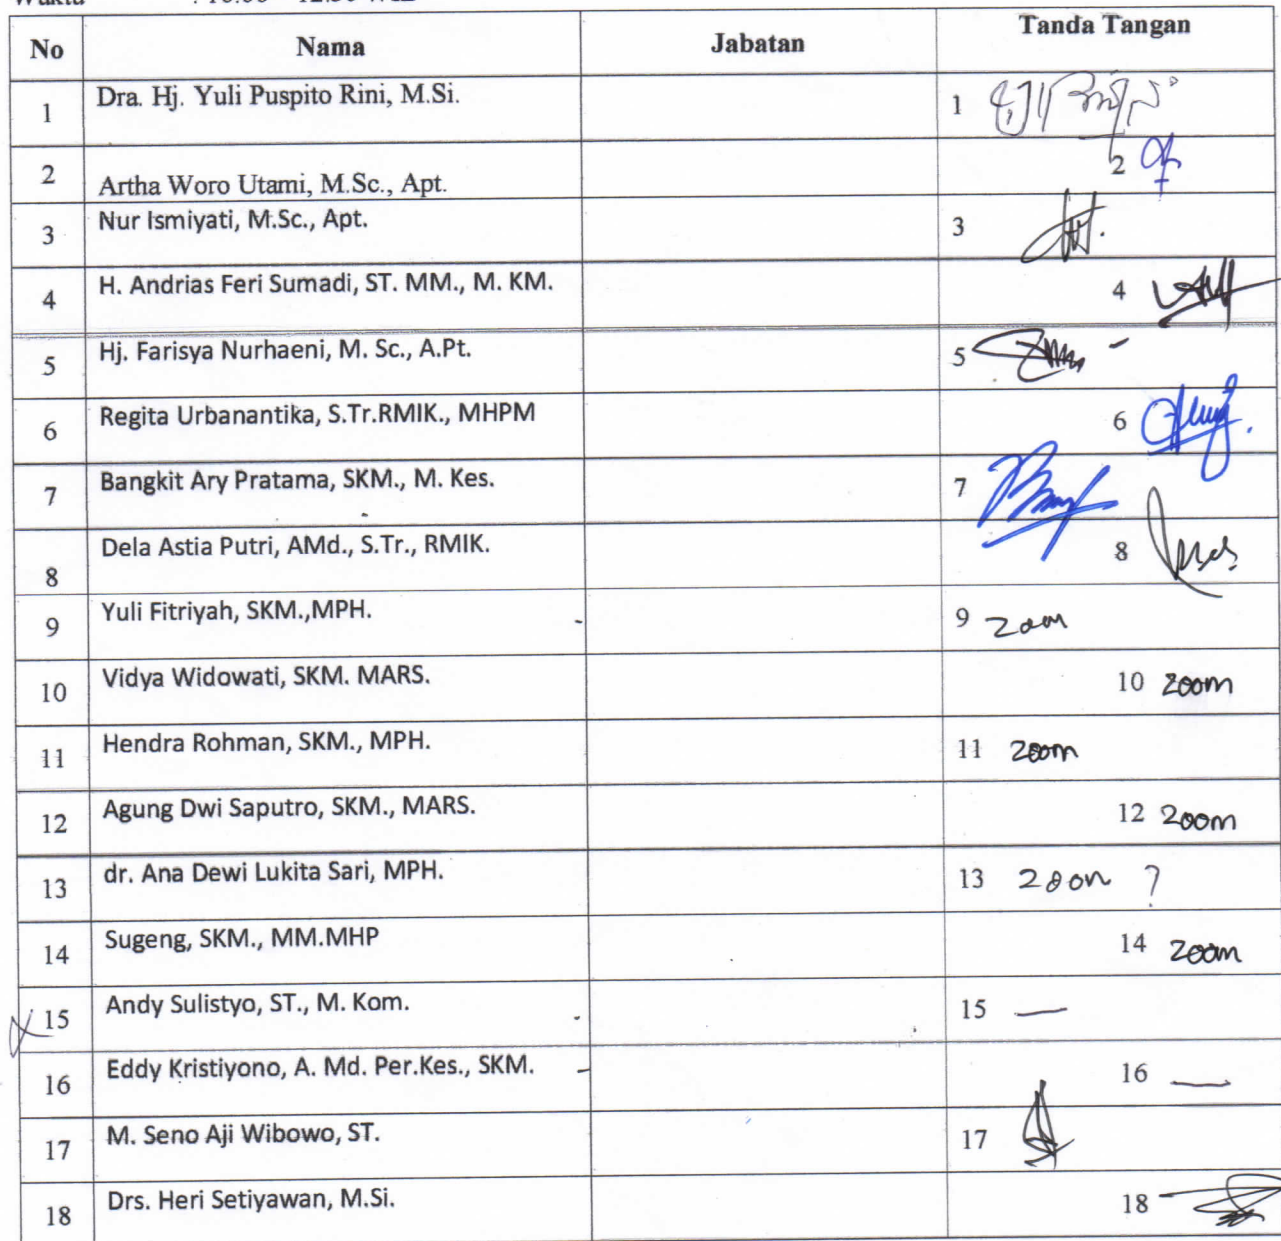 No Nama Jabatan Tanda Tangan
1 Dra. Hj. Yuli Puspito Rini, M.Si. 1
2 Artha Woro Utami, M.Sc., Apt. 2
3 Nur Ismiyati, M.Sc., Apt. 3
4 H. Andrias Feri Sumadi, ST. MM., M. KM. 4
5 Hj. Farisya Nurhaeni, M. Sc., A.Pt. 5
6 Regita Urbanantika, S.Tr.RMIK., MHPM 6
7 Bangkit Ary Pratama, SKM., M. Kes. 7
8 Dela Astia Putri, AMd., S.Tr., RMIK. 8
9 Yuli Fitriyah, SKM.,MPH. 9 zoom
10 Vidya Widowati, SKM. MARS. 10 zoom
11 Hendra Rohman, SKM., MPH. 11 zoom
12 Agung Dwi Saputro, SKM., MARS. 12 zoom
13 dr. Ana Dewi Lukita Sari, MPH. 13 zoom ?
14 Sugeng, SKM., MM.MHP 14 zoom
15 Andy Sulistyo, ST., M. Kom. 15 —
16 Eddy Kristiyono, A. Md. Per.Kes., SKM. 16 —
17 M. Seno Aji Wibowo, ST. 17
18 Drs. Heri Setiyawan, M.Si. 18